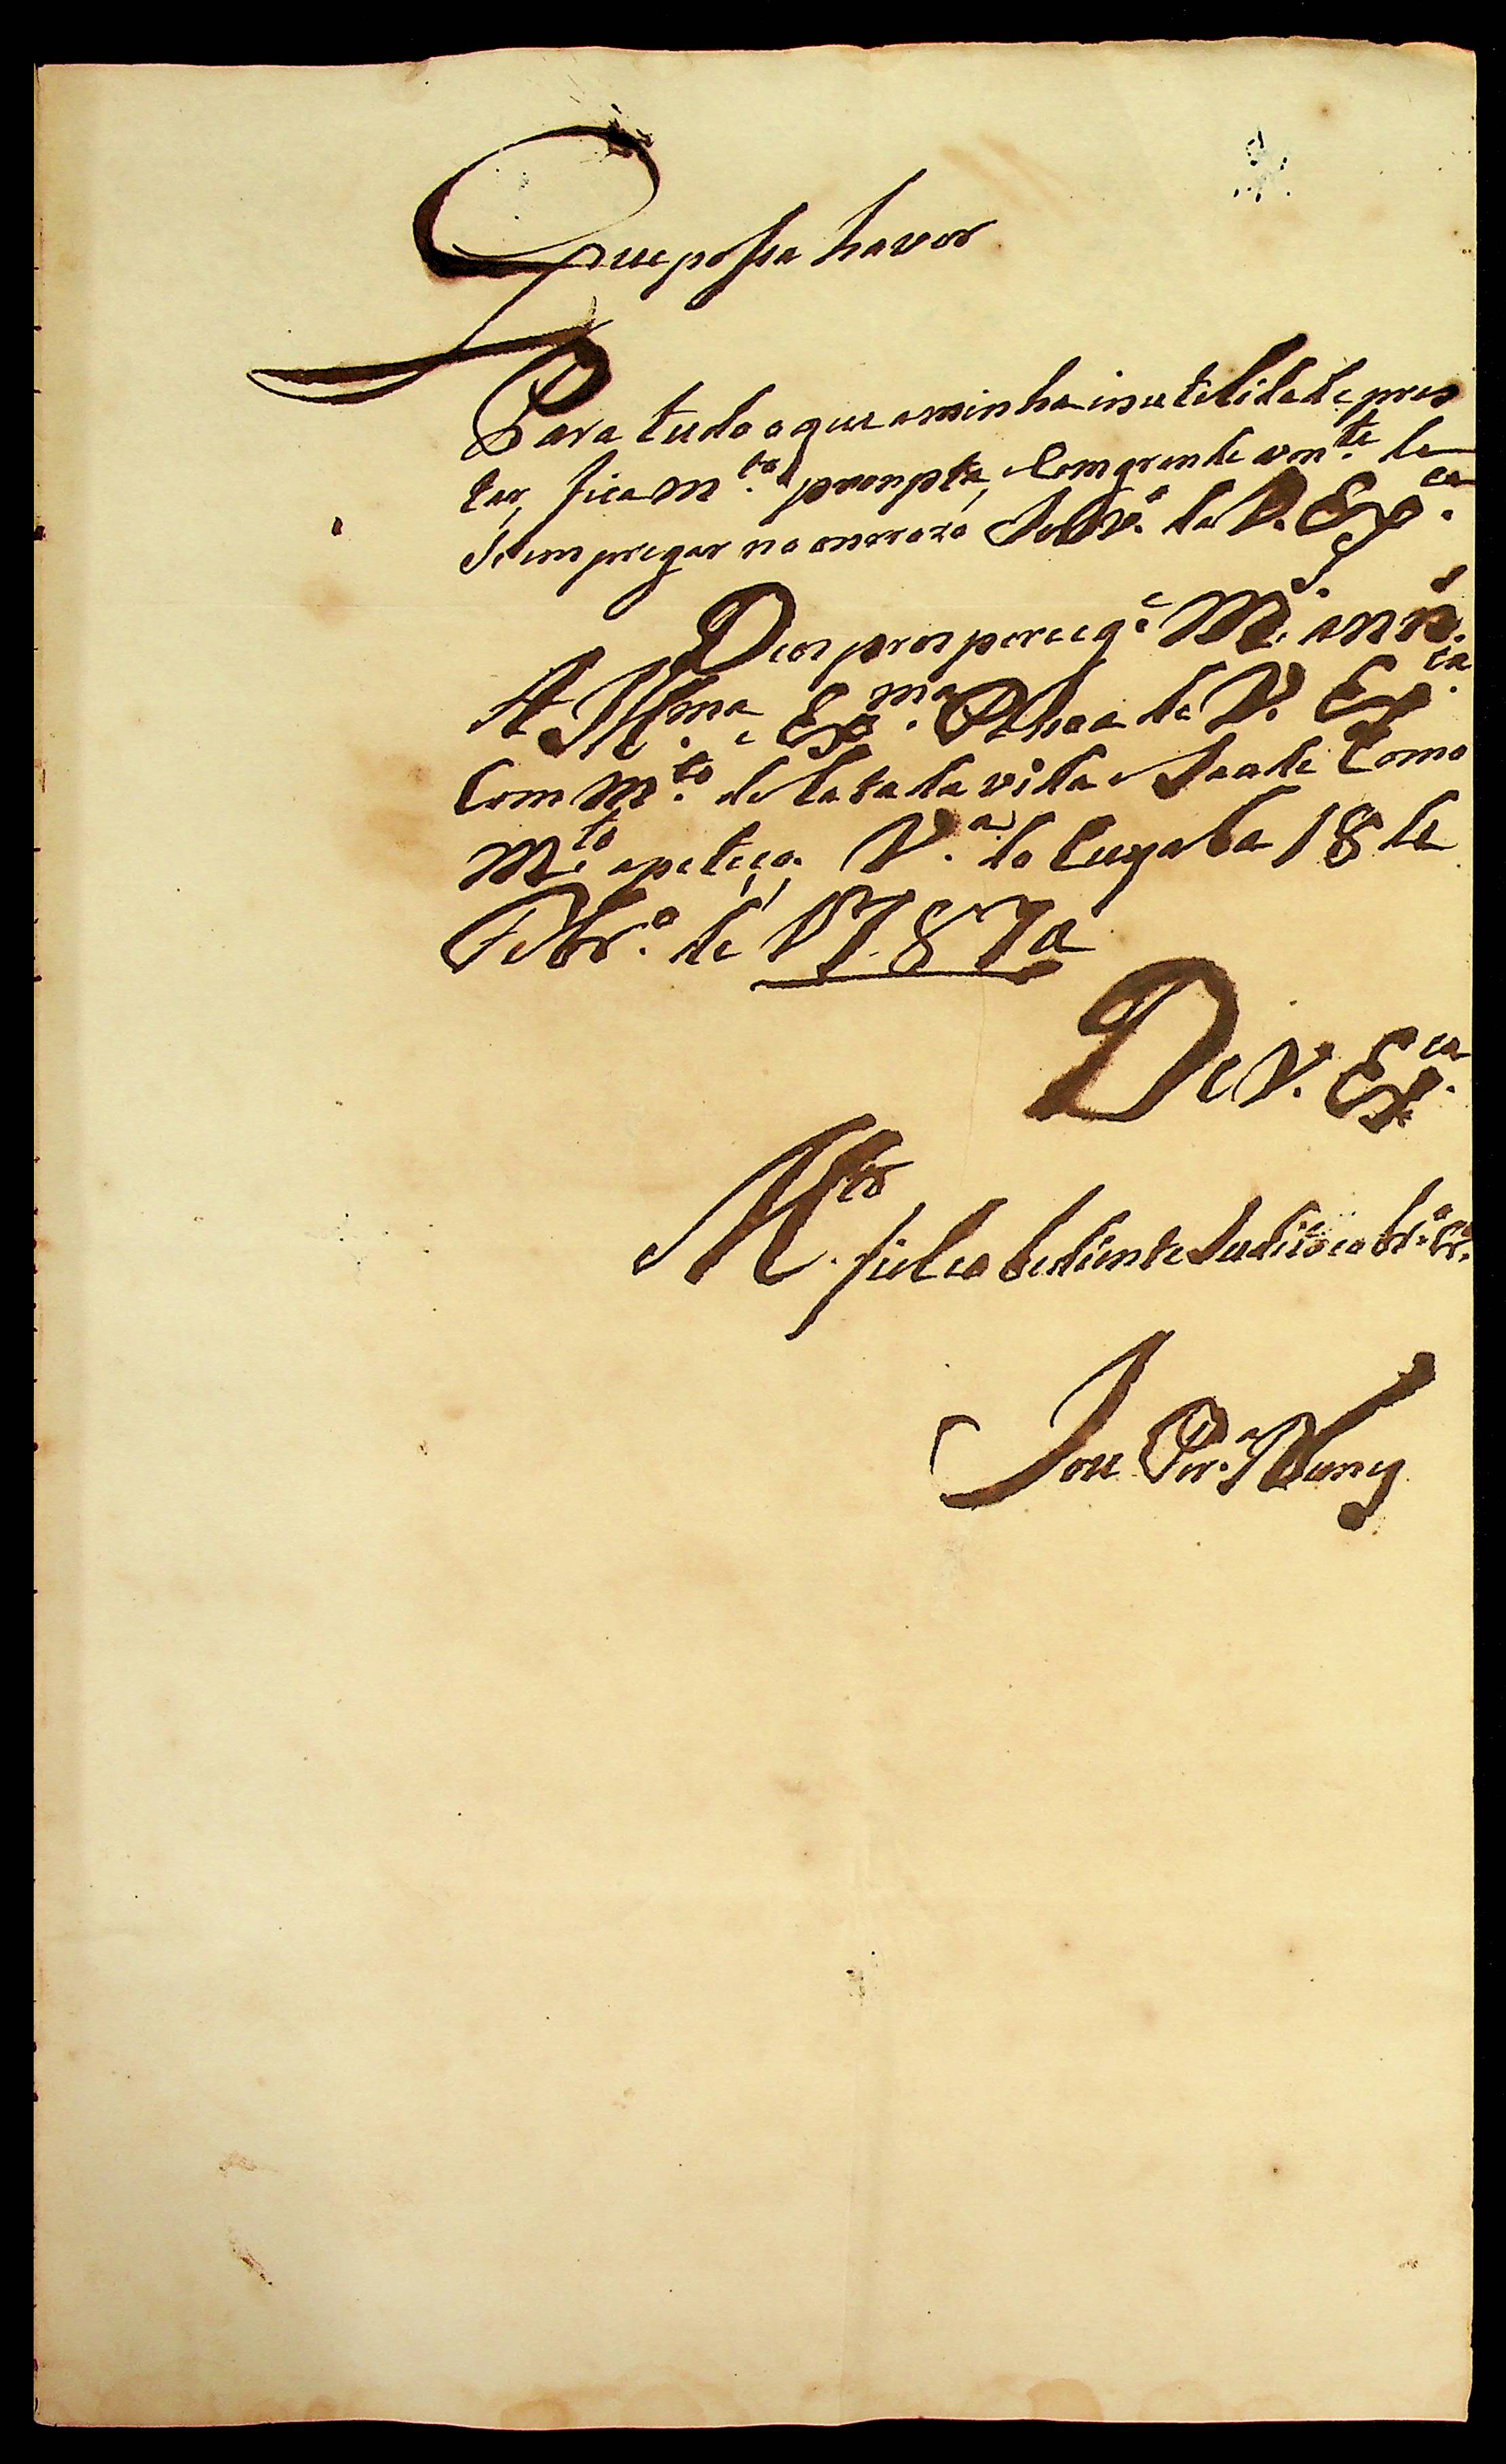 Que possa haver
Para tudo o que a minha inutelidade pres
tar, fica m.to prompta, e Com grande vont.e de
se empregar no onrrozo Serv.o de V. Ex.ca
Deos prospere e g.e M.s ann.s
A Ill.ma e Ex.ma Pessoa de V. Ex.ca
Com m.to delatada vida e Saude Como
M.to apeteço. V.a do Cuyaba 18 de
Febr.o de 1787a
De V. Ex.ca
M.to fiel e obediente Sudito e obr.o Cr.o
Joze Per.a Nunes